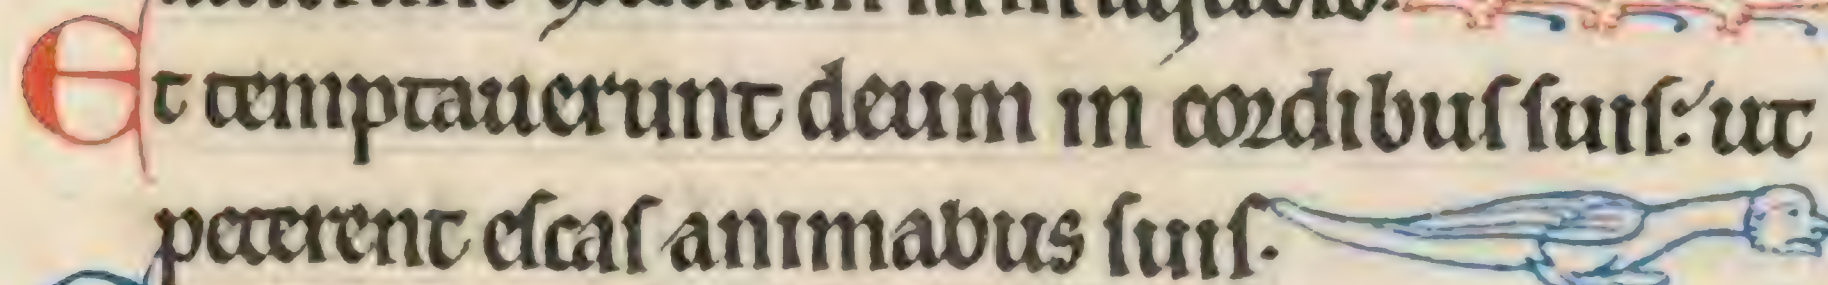 in inaquoso.
Et temptauerunt deum in cordibuſ ſuiſ: ut
peterent eſcaſ animabus ſuiſ.